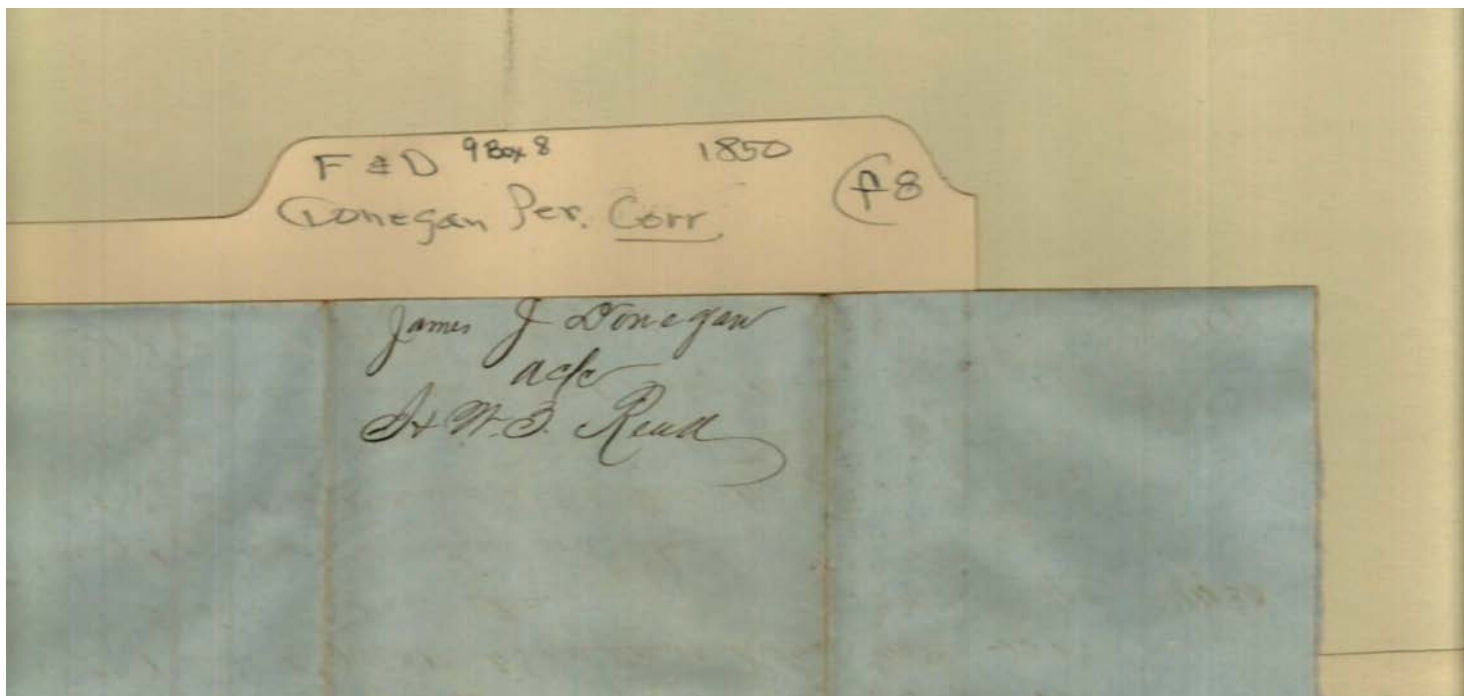 F & D 9 Box 8 1850
Donegan Per. Corr. f 8
James J Donegan
a/c
W. B. Read